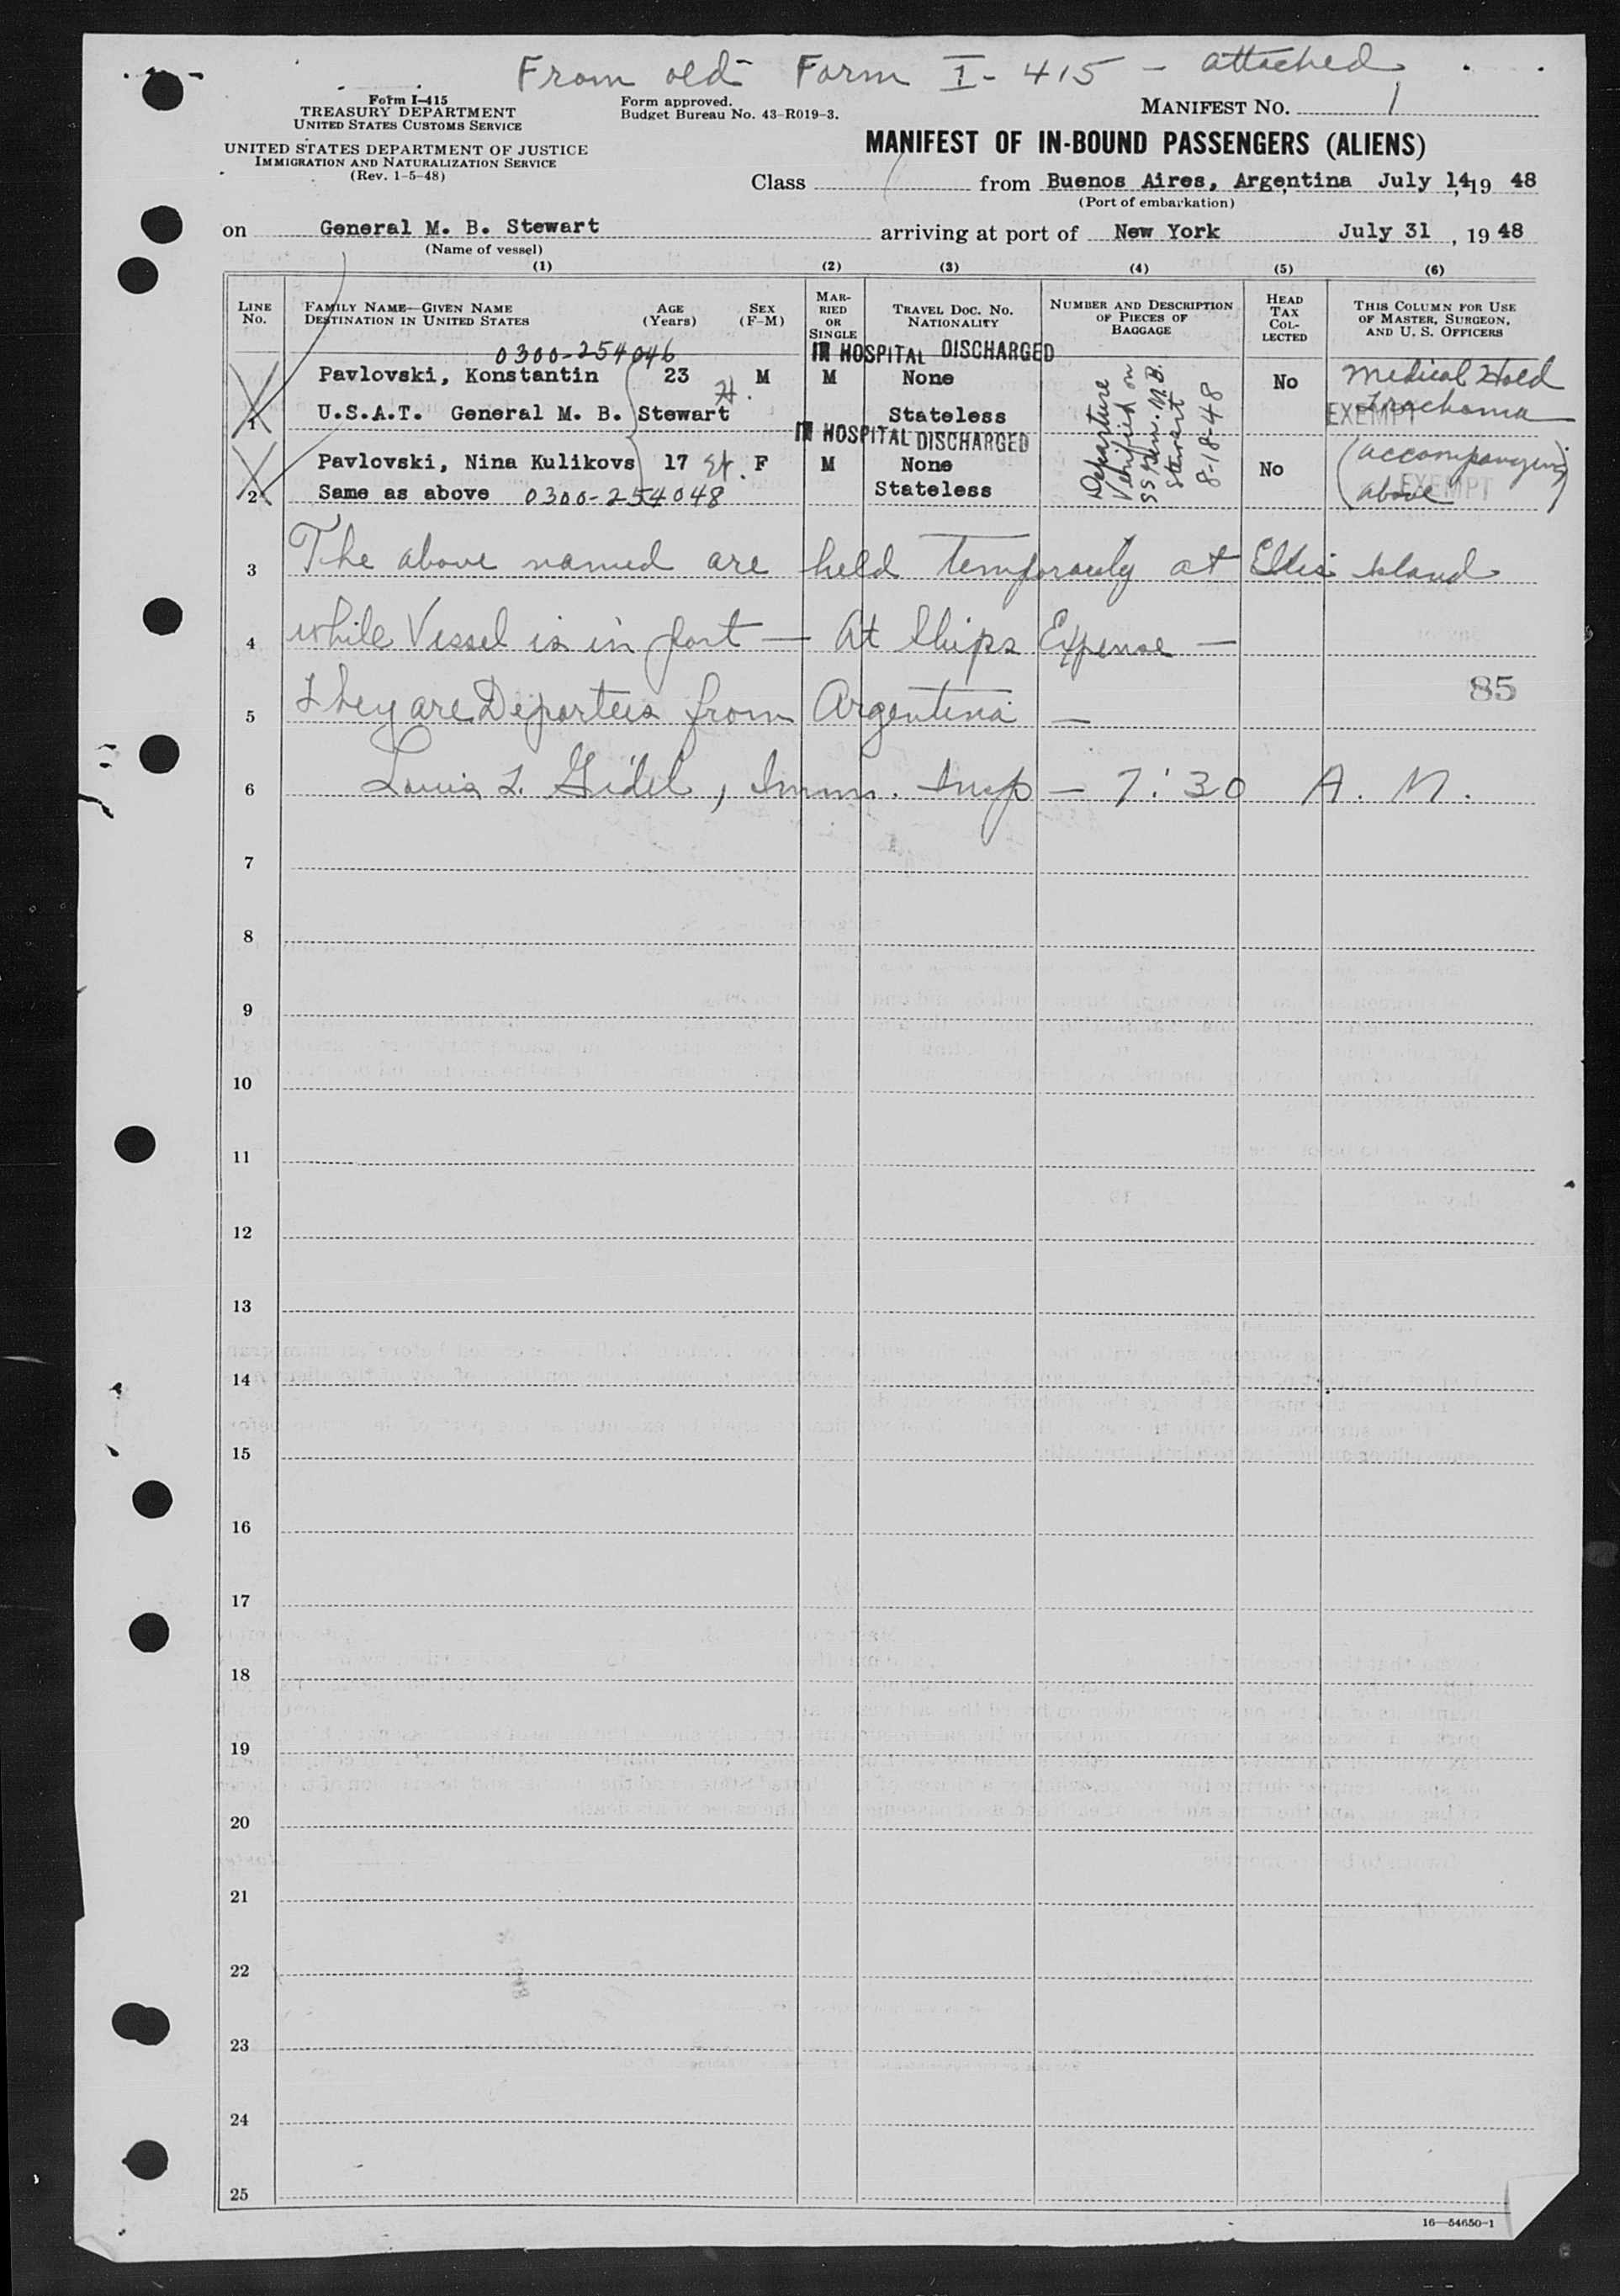 From old Form I-415 - attached
Form I-415
TREASURY DEPARTMENT
UNITED STATES CUSTOMS SERVICE
UNITED STATES DEPARTMENT OF JUSTICE
IMMIGRATION AND NATURALIZATION SERVICE
(Rev. 1-5-48)
Form approved.
Budget Bureau No. 43-R019-3.
MANIFEST NO. 1
MANIFEST OF IN-BOUND PASSENGERS (ALIENS)
Class from Buenos Aires, Argentina July 14, 19 48
(Port of embarkation)
on General M. B. Stewart arriving at port of New York July 31, 19 48
(Name of vessel)
(1) (2) (3) (4) (5) (6)
LINE NO.
FAMILY NAME—GIVEN NAME
DESTINATION IN UNITED STATES
AGE (Years)
SEX (F-M)
MARRIED OR SINGLE
TRAVEL DOC. NO. NATIONALITY
NUMBER AND DESCRIPTION OF PIECES OF BAGGAGE
HEAD TAX COLLECTED
THIS COLUMN FOR USE OF MASTER, SURGEON, AND U. S. OFFICERS
0300-254046 IN HOSPITAL DISCHARGED
Pavlovski, Konstantin 23 M M None No Medical Hold
1 U.S.A.T. General M. B. Stewart Stateless EXEMPT Trachoma
IN HOSPITAL DISCHARGED
Pavlovski, Nina Kulikovs 17 F M None No (accompanying
2 Same as above 0300-254048 Stateless above) EXEMPT
Departure
Verified on
SS Gen. M.B.
Stewart
8-18-48
3 The above named are held temporarily at Ellis Island
4 while Vessel is in port — At Ships Expense —
85
5 They are Deportees from Argentina —
6 Louis L. Gidel, Imm. Insp — 7:30 A. M.
7
8
9
10
11
12
13
14
15
16
17
18
19
20
21
22
23
24
25
16—54650-1